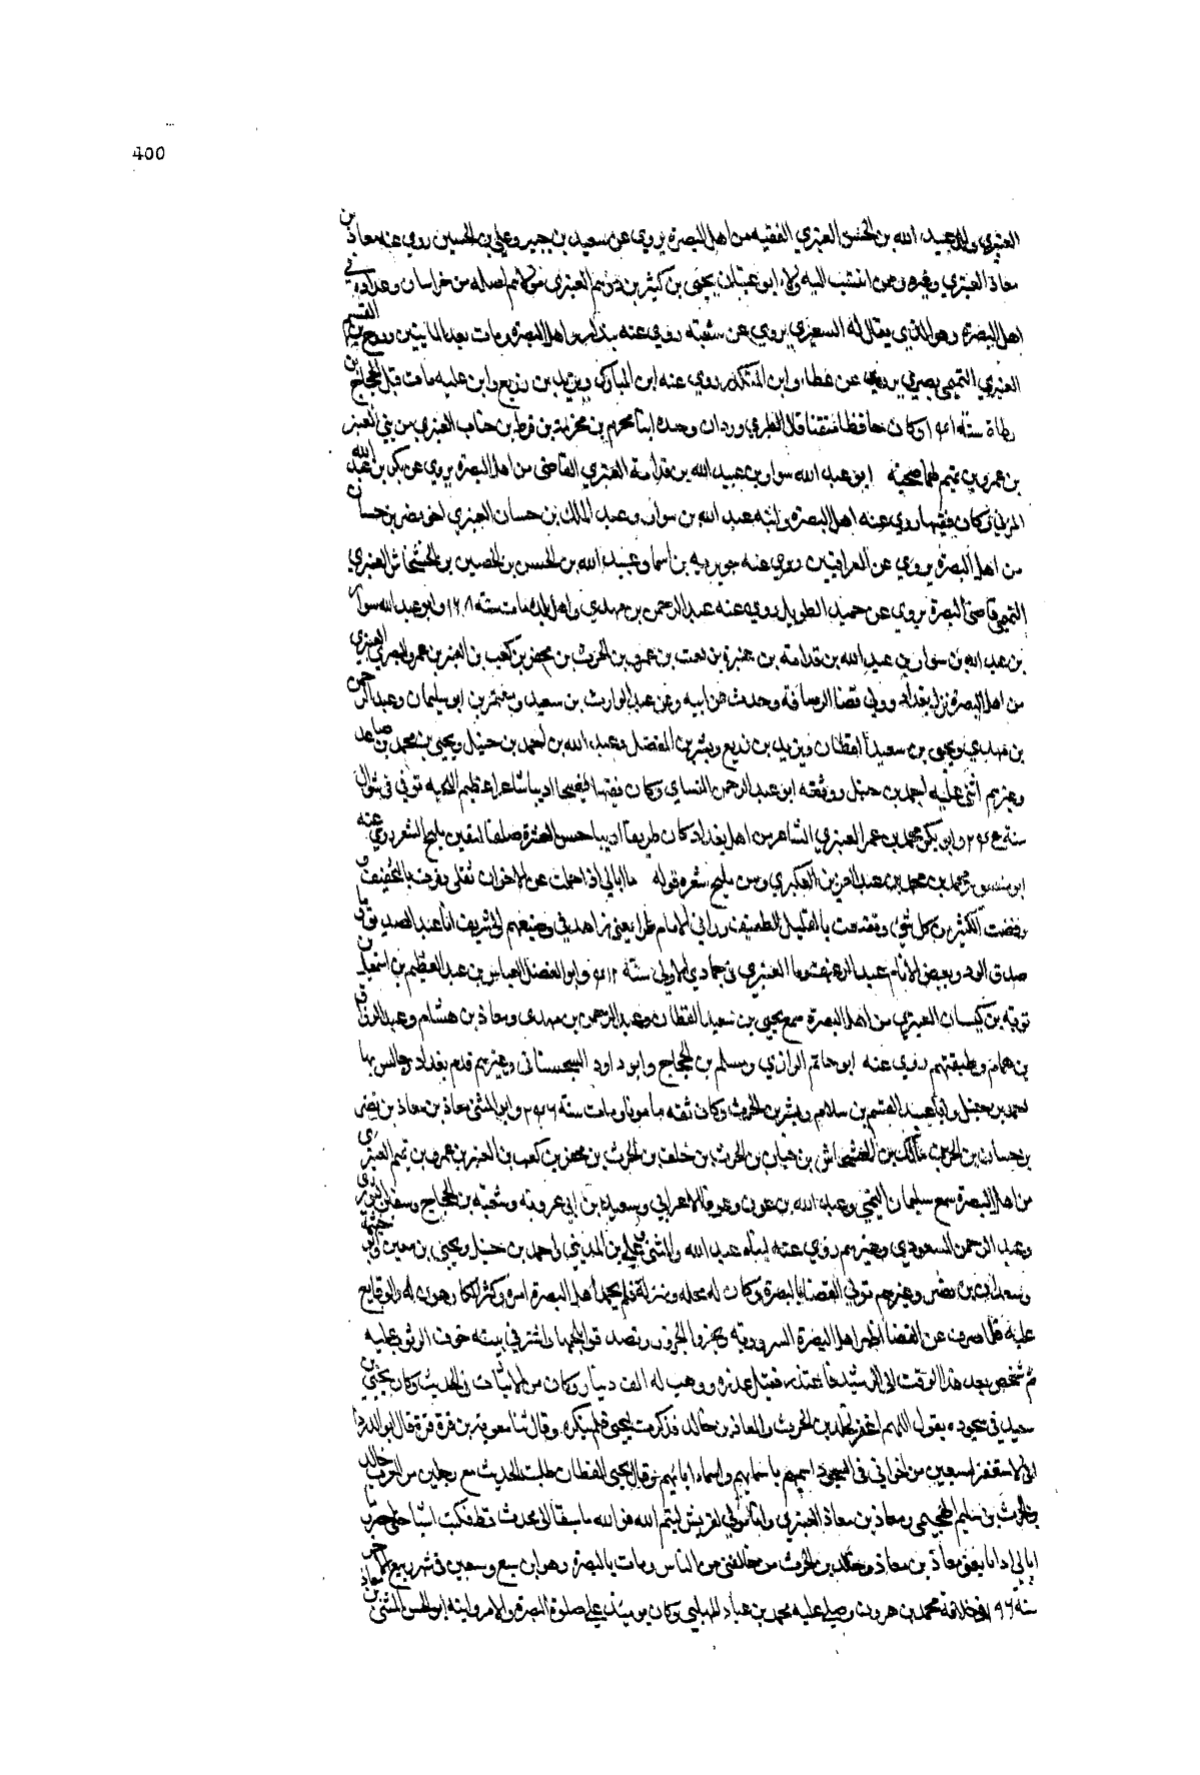 400
العنبري وقيل عبيد الله بن الحسن العنبري الفقيه من اهل البصرة يروي عن سعيد بن جبير وعلي بن الحسين روي عنه معاذ بن
معاذ العنبري وغيره ومن انتسب اليه ولاء ابو غسان يحيى بن كثير بن درهم العنبري مولاهم اصله من خراسان وعداده في
اهل البصرة وهو الذي يقال له السعيري يروي عن شعبة روي عنه بندار واهل البصرة ومات بعد المايتين روح بن القسم
العنبري التميمي بصري يروي عن عطاء وابن المنكدر روي عنه ابن المبارك ويزيد بن زريع وابن عليه مات قبل الحجاج بن
رطاة سنة ١٤١ وكان حافظا متقنا قال الطبري وردان وحده ابنا محرم بن مخرمة بن قرط بن جناب العنبري من بني العنبر
بن عمرو بن تميم لهما صحبة ابو عبد الله سوار بن عبد الله بن قدامة العنبري القاضي من اهل البصرة يروي عن بكر بن عبد الله
المزني وكان فقيها روي عنه اهل البصرة وابنه عبد الله بن سوار وعبد الملك بن حسان العنبري اخو نضر بن حسان
من اهل البصرة يروي عن العراقيين روي عنه جويرية بن اسما وعبيد الله بن الحسن بن الحصين بن الخشخاش العنبري
التميمي قاضي البصرة يروي عن حميد الطويل روي عنه عبد الرحمن بن مهدي واهل بلده مات سنة ١٦٨ وابو عبد الله سوار
بن عبد الله بن سوار بن عبد الله بن قدامة بن عنزة بن نعت بن عمرو بن الحرث بن مجفر بن كعب بن العنبر بن عمرو البصري العنبري
من اهل البصرة نزل بغداد وولي قضا الرصافة وحدث عن ابيه وعن عبد الوارث بن سعيد ومعتمر بن ابو سليمان وعبد الرحمن
بن مهدي ويحيى بن سعيد القطان ويزيد بن زريع وبشر بن المفضل وعبد الله بن احمد بن حنبل ويحيى بن محمد بن صاعد
وغيرهم اثنى عليه احمد بن حنبل ووثقه ابو عبد الرحمن النساي وكان فقيها فصيحا اديبا شاعرا عظيم اللحية توفي في شوال
سنة ٢٤٥ وابو بكر محمد بن عمر العنبري الشاعر من اهل بغداد كان ظريفا اديبا حسن العشرة مليح الشعر روي عنه
ابو منصور محمد بن محمد بن عبد العزيز العكبري ومن مليح شعره قوله ما ابالي اذا حملت عن الاخوان ثقلي وفزت بالتخفيف و
رفضت الكثير من كل شي وتقنعت بالقليل الطفيف
صدق الود وبعض الانام عبد الرغيف ومات العنبري في جمادي الاولي سنة ٤١٢ وابو الفضل العباس بن عبد العظيم بن اسمعيل بن
توبة بن كيسان العنبري من اهل البصرة سمع يحيى بن سعيد القطان وعبد الرحمن بن مهدي ومعاذ بن هشام وعبد الرزاق
بن همام وطبقتهم روي عنه ابو حاتم الرازي ومسلم بن الحجاج وابو داود السجستاني وغيرهم قدم بغداد وجالس بها
احمد بن حنبل وابا عبيد القسم بن سلام وبشر بن الحرث وكان ثقة مامونا ومات سنة ٢٤٦ وابو المثنى معاذ بن معاذ بن نصر
بن حسان بن الحر بن مالك بن الخشخاش بن جناب بن الحرث بن خلف بن الحرث بن مجفر بن كعب بن العنبر بن عمرو بن تميم العنبري
من اهل البصرة سمع سليمان التيمي وعبد الله بن عون وعوفا الاعرابي وسعيد بن ابي عروبة وشعبة بن الحجاج وسفيان الثوري
وعبد الرحمن المسعودي وغيرهم روي عنه ابناه عبيد الله والمثنى وعلي بن المديني واحمد بن حنبل ويحيى بن معين وابو خيثمة
وسعدان بن نصر وغيرهم تولي القضا بالبصرة وكان له محله ومنزلة فلم يحمد اهل البصرة امره وكثر
عليه فلما صرف عن القضا اظهر اهل البصرة السرور به ونحروا الجزور وتصدقوا بلحمها واستتر في بيته خوف الوثوب عليه
ثم شخص بعد هذا الوقت الى الرشيد فاعتذر فقبل عذره ووهب له الف دينار وكان من الاثبات في الحديث وكان يحيى بن
سعيد في سجوده يقول اللهم اغفر لخالد بن الحرث ولمعاذ بن معاذ فذكرت ليحيى فلم ينكره وقال ثنا معوية بن قرة قال قال ابو الدرداء
اني لاستغفر لسبعين من اخواني في السجود اسميهم باسمايهم واسماء ابايهم وقال يحيى القطان طلبت الحديث مع رجلين من العرب خالد
بن الحرث بن سليم الهجيمي ومعاذ بن معاذ العنبري وانا مولي لقريش لتيم الله فوالله ما سبقاني الى محدث قط فكتبا شيا حتى احضر وما
ابالي اذا تابعني معاذ بن معاذ وخالد بن الحرث من خالفني من الناس ومات بالبصرة وهو ابن سبع وسبعين في شهر ربيع الاخر
سنة ١٩٦ في خلافة محمد بن هرون وصلى عليه محمد بن عباد المهلبي وكان يوميذ علي صلوة البصرة والامر وابنه ابو الحسن المثنى بن معاذ